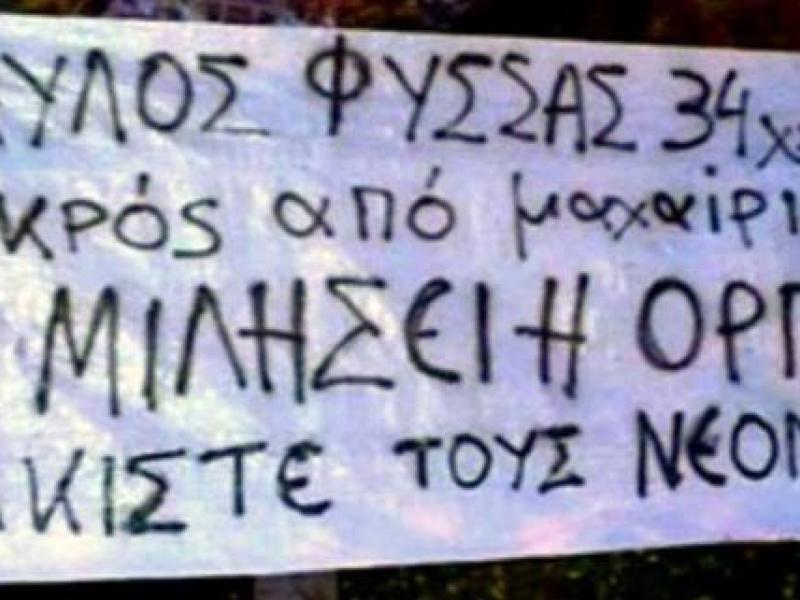 ΥΛΟΣ ΦΥΣΣΑΣ 34 χ
κρός από μαχαίρι
ΜΙΛΗΣΕΙ Η ΟΡΓ
ΚΙΣΤΕ ΤΟΥΣ ΝΕΟΝ